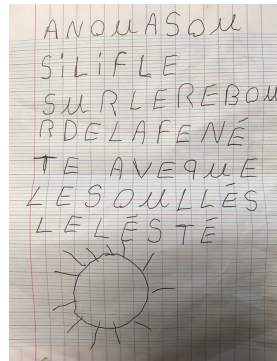 ANOUASOU
SiLiFLE
SURLEREBOU
RDELAFENÉ
TE AVEQUE
LESOULLÉS
LELÉSTÉ